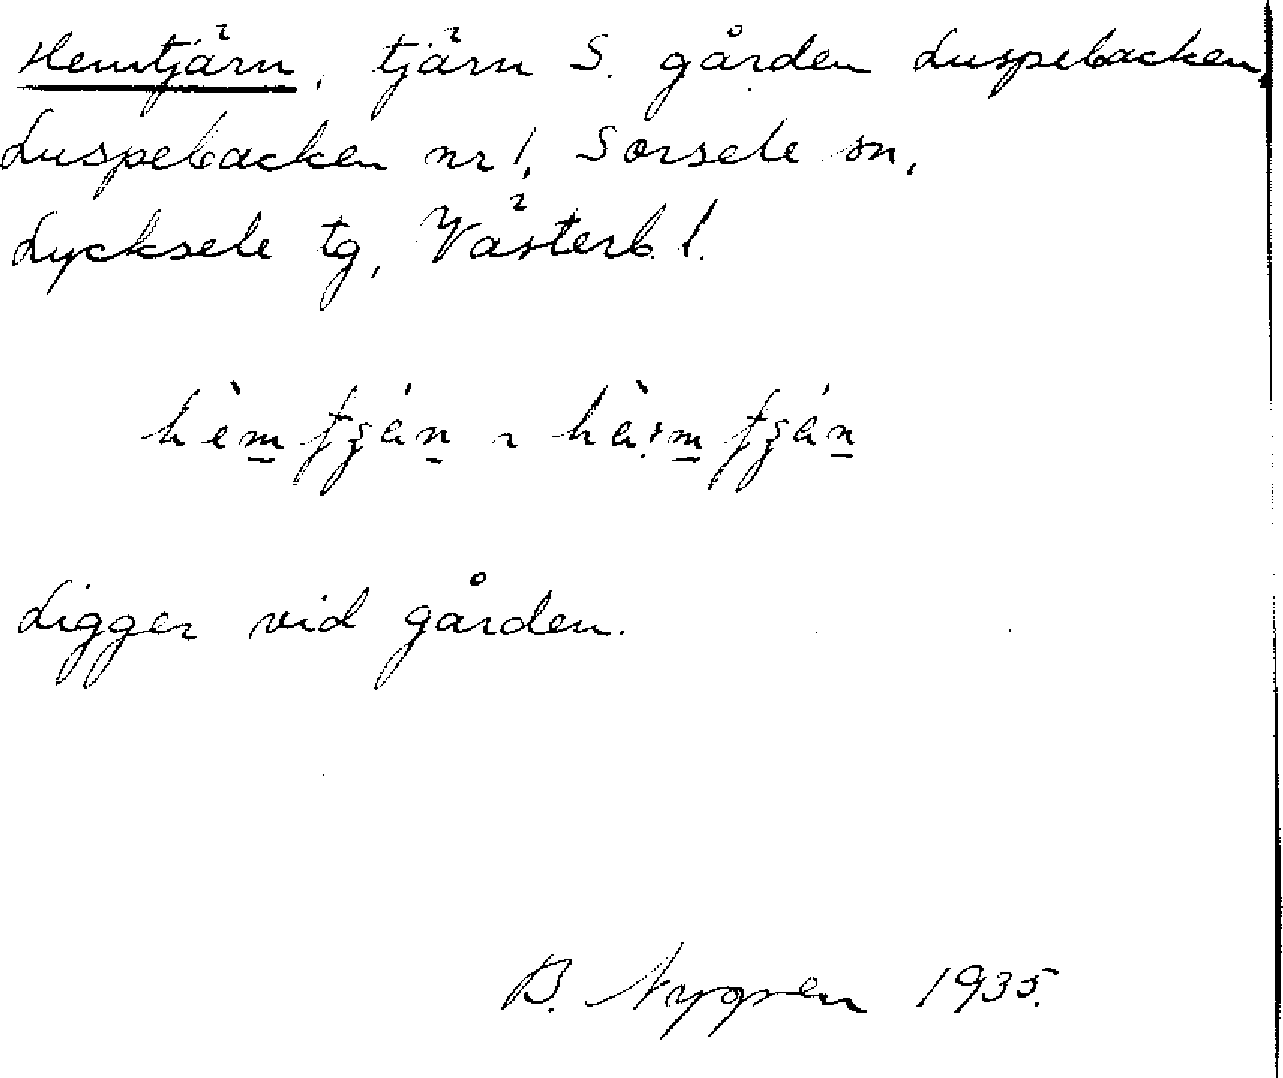 Hemtjärn, tjärn S. gården Luspebacken,
Luspebacken nr 1, Sorsele sn,
Lycksele tg, Västerb. l.
Ligger vid gården.
B. Nygren 1935.